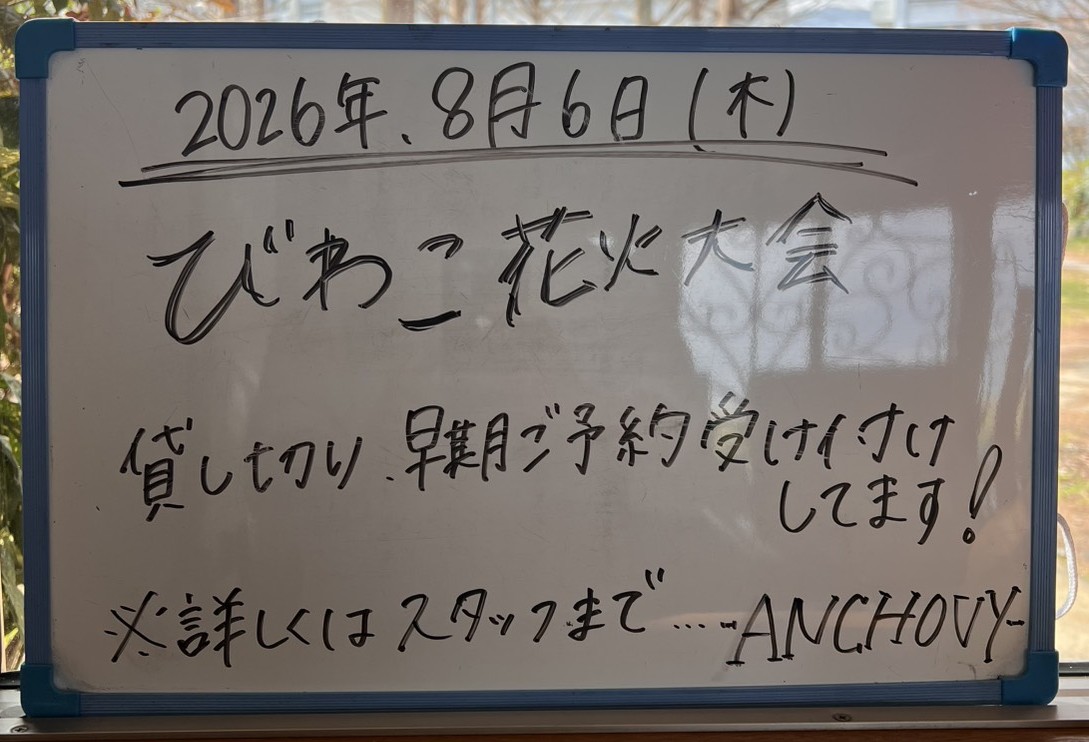 2026年.8月6日(木)
びわこ花火大会
貸し切り.早期ご予約受け付け
してます!
※詳しくはスタッフまで...-ANCHOVY-